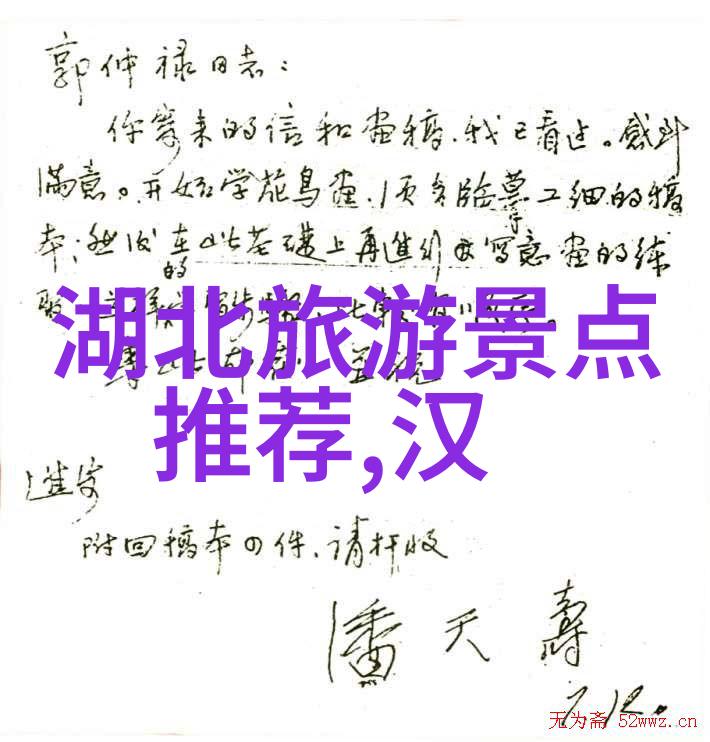 郭仲禄同志：
你寄来的信和画稿，我已看过。感到
满意。开始学花鸟画，须多临摹工细的稿
本；然后在此基础上再进行写意画的练
湖北旅游景点
推荐,汉
进安
附回稿本四件，请检收
潘天寿
7.12.
无为斋 52wwz.cn